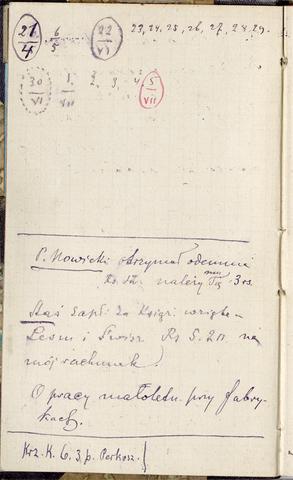 21/4 6/5 22/VI 23, 24, 25, 26, 27, 28 29.
30/VI 1/VII 2, 3, 4 5/VII
P. Nowicki otrzymał odemnie
należy mu się 3 rs.
Staś zapł. za Książki wzięte
i Rs 5. 20. na
mój rachunek.
O pracy małoletn. przy fabry-
kach.
Krz. K. 6, 3, p. Perkosz.